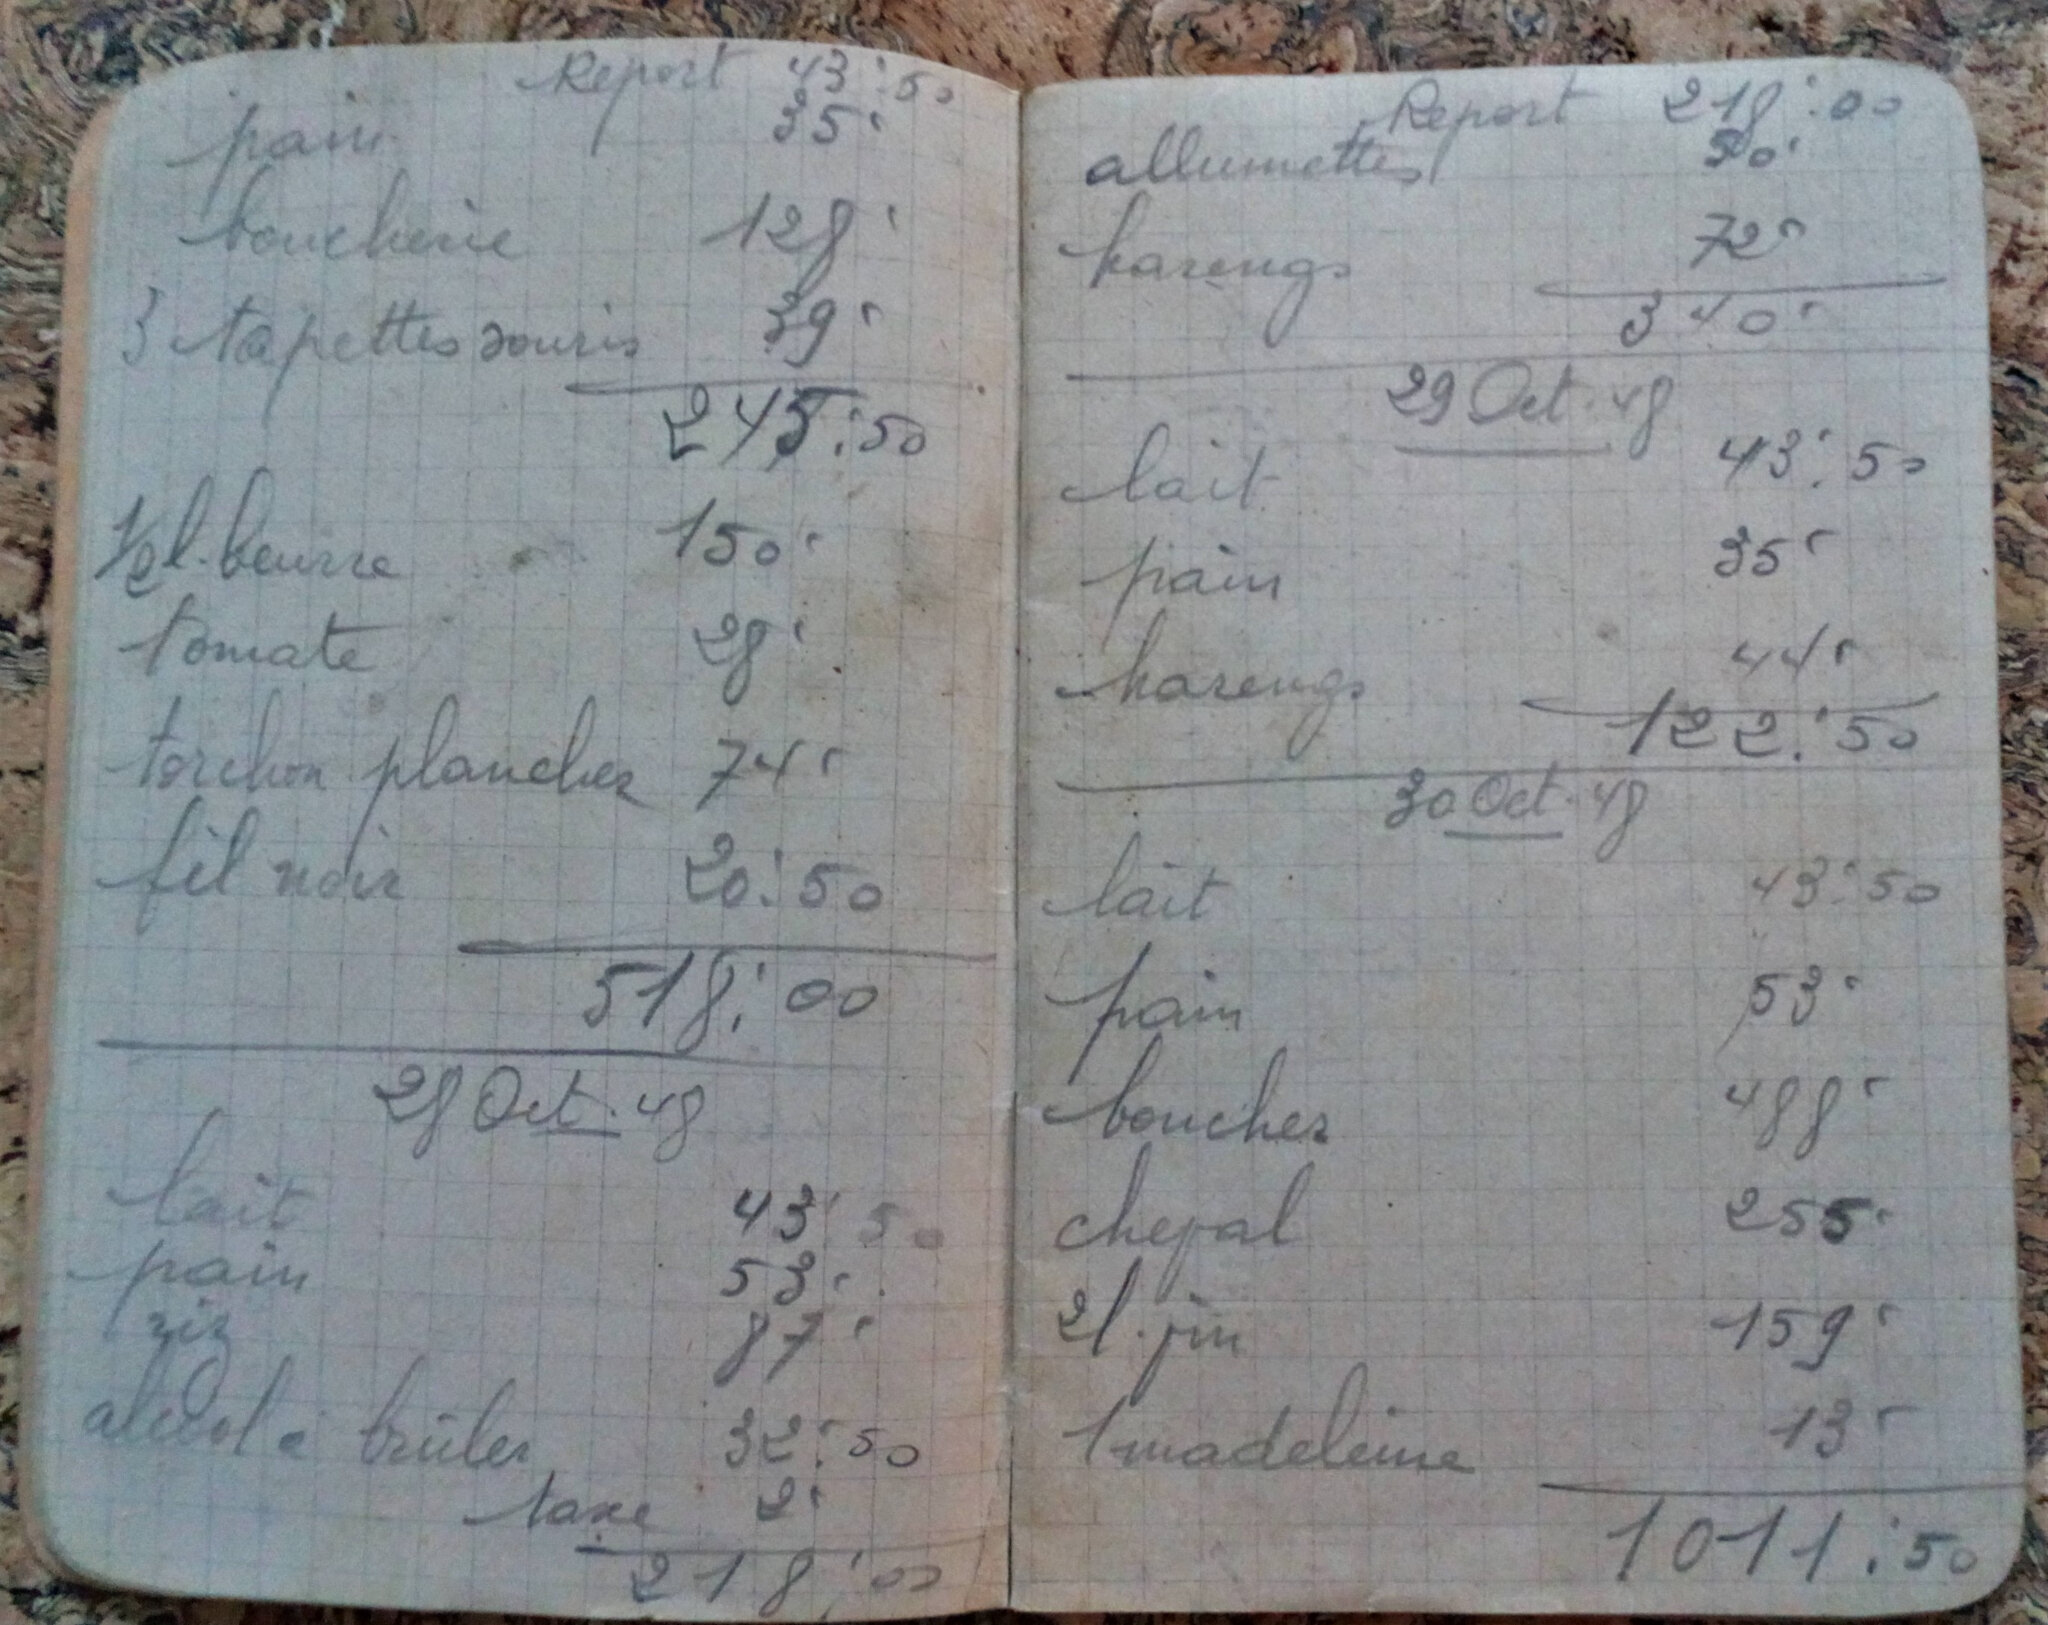 Report 43:50
pain 35'
boucherie 128'
3 tapettes souris 39'
245:50
1/2 l. beurre 150'
tomate 28'
torchon plancher 74'
fil noir 20:50
518:00
28 Oct. 48
lait 43:50
pain 53'
riz 87'
alcool à brûler 32:50
taxe 2'
218:00
Report 218:00
allumettes 50'
harengs 72'
340'
29 Oct. 48
lait 43:50
pain 35'
harengs 44'
122:50
30 Oct. 48
lait 43:50
pain 53'
boucher 488'
cheval 255'
2 l. vin 159'
1 madeleine 13'
1011:50